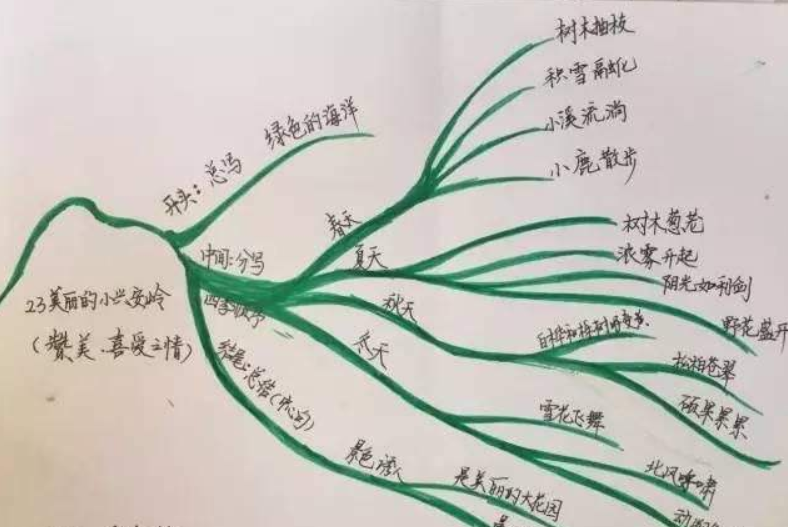 23美丽的小兴安岭
(赞美、喜爱之情)
开头:总写
绿色的海洋
中间:分写
四季顺序
春天
树木抽枝
积雪融化
小溪流淌
小鹿散步
夏天
树木葱茏
浓雾升起
阳光如利剑
野花盛开
秋天
松柏苍翠
硕果累累
冬天
雪花飞舞
北风呼啸
结尾:总结(中心句)
景色诱人
是美丽的大花园